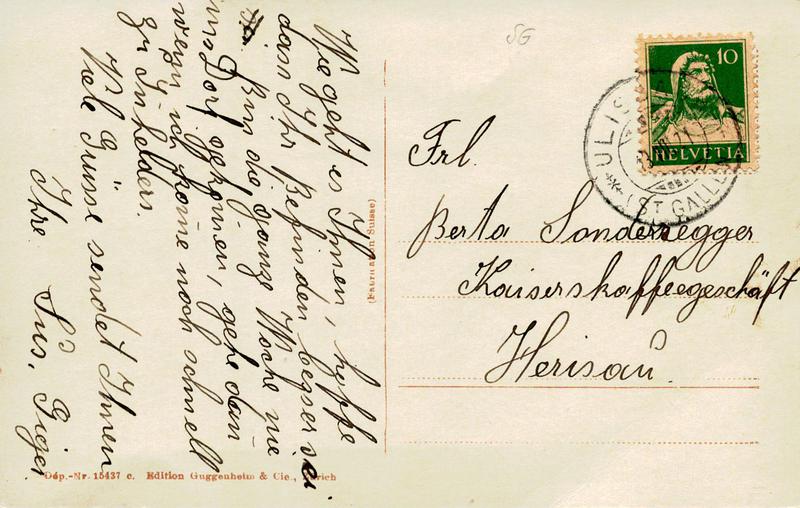 Wie geht es Ihnen, hoffe
dass Ihr Befinden besser sei
Bin die ganze Woche nie
ins Dorf gekomen, gehe dan
wenn ich kome noch schnell
zu Inhelders.
Viele Grüsse sendet Ihnen
Ihre Sus. Giger
(Fabrikation Suisse)
Dép.-Nr. 15437 c. Edition Guggenheim & Cie., Zürich
SG
10
HELVETIA
ULIS
(ST. GALLEN)
Frl.
Berta Sonderegger
Kaiserskaffeegeschäft
Herisau